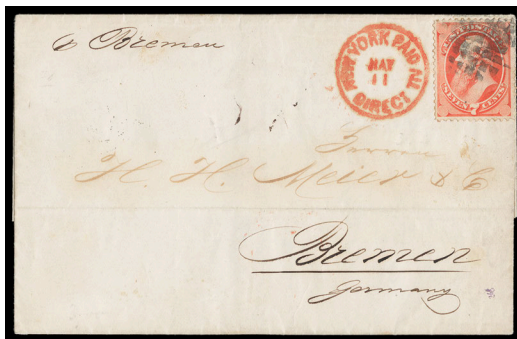 p Bremen
NEW YORK PAID ALL
MAY
11
DIRECT
SEVEN 7 CENTS
H. H. Meier & C
Bremen
Germany